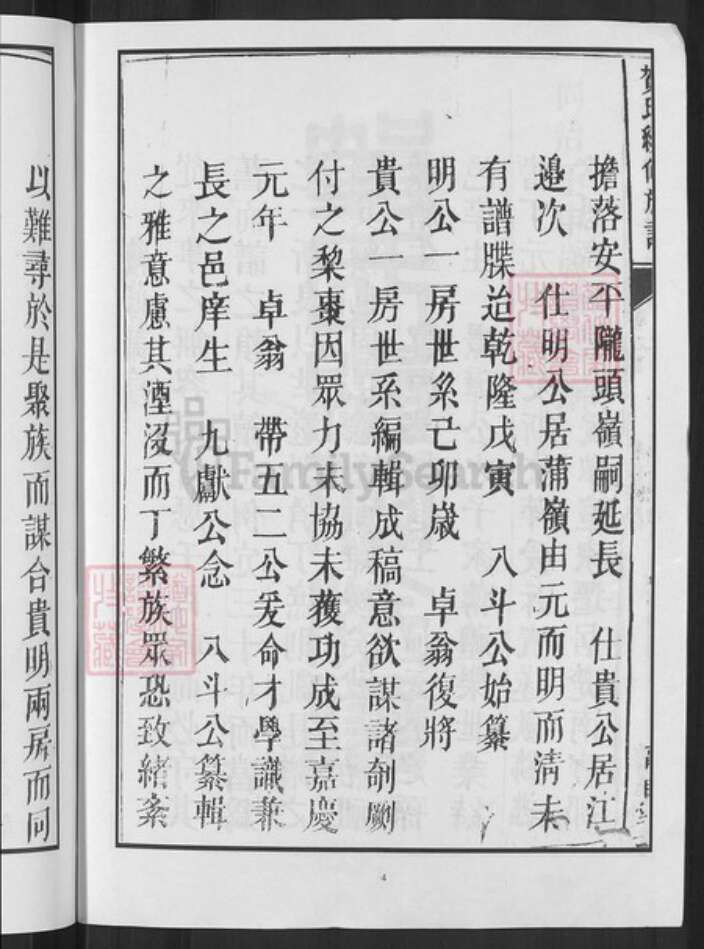 賀氏續修族譜
擔落安平隴頭嶺嗣延長　仕貴公居江
邉次　仕明公居蒲嶺由元而明而清未
有譜牒迨乾隆戊寅　八斗公始纂
明公一房世系己卯歲　卓翁復將
貴公一房世系編輯成稿意欲謀諸剞劂
付之棃棗因眾力未協未獲功成至嘉慶
元年　卓翁　帶五二公爰命才學識兼
長之邑庠生　九獻公念　八斗公纂輯
之雅意慮其湮沒而丁繁族眾恐致緒紊
以難尋於是聚族而謀合貴明兩房而同
4
FamilySearch